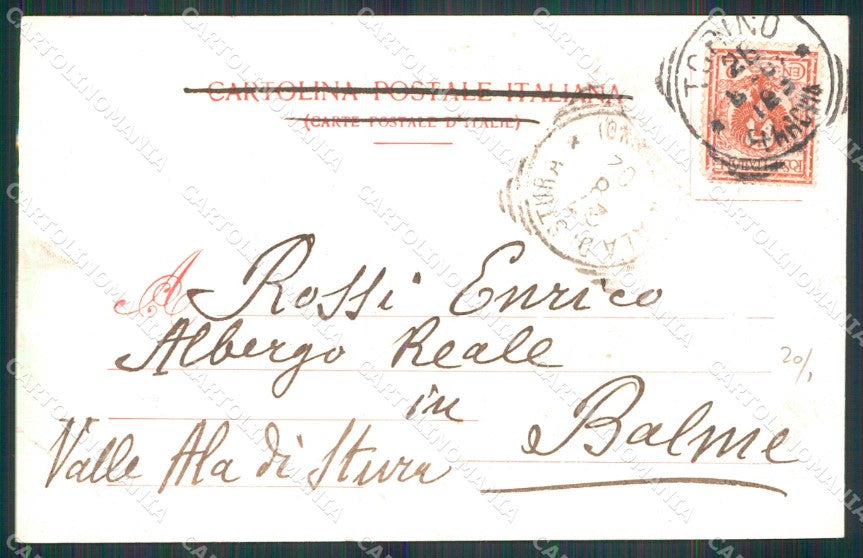 CARTOLINA POSTALE ITALIANA
(CARTE POSTALE D'ITALIE)
TORINO
A Rossi Enrico
Albergo Reale
in
Balme
Valle Ala di Stura
20/1
CARTOLINOMANIA